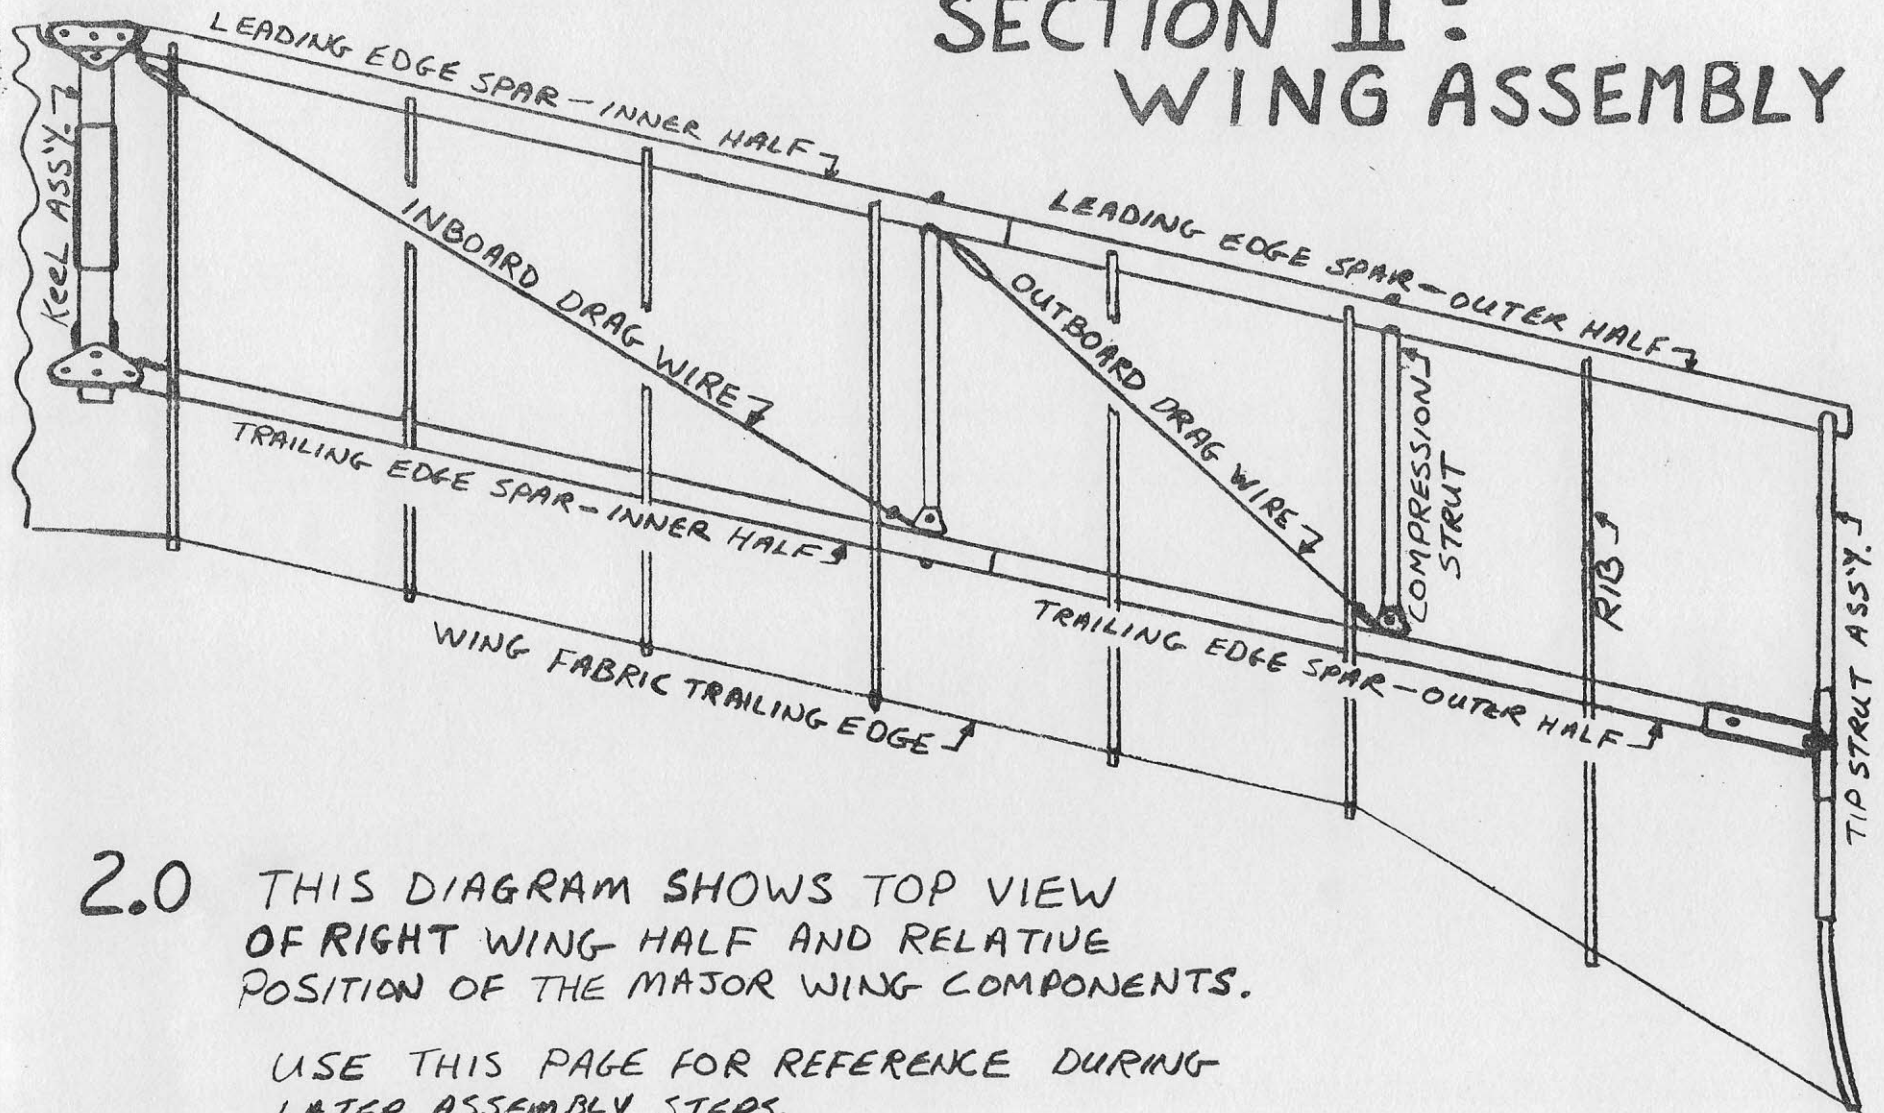 SECTION II:
WING ASSEMBLY
LEADING EDGE SPAR - INNER HALF
KEEL ASS'Y.
INBOARD DRAG WIRE
LEADING EDGE SPAR - OUTER HALF
OUTBOARD DRAG WIRE
COMPRESSION
STRUT
RIB
TIP STRUT ASS'Y.
TRAILING EDGE SPAR - INNER HALF
TRAILING EDGE SPAR - OUTER HALF
WING FABRIC TRAILING EDGE
2.0 THIS DIAGRAM SHOWS TOP VIEW
OF RIGHT WING HALF AND RELATIVE
POSITION OF THE MAJOR WING COMPONENTS.
USE THIS PAGE FOR REFERENCE DURING
LATER ASSEMBLY STEPS.